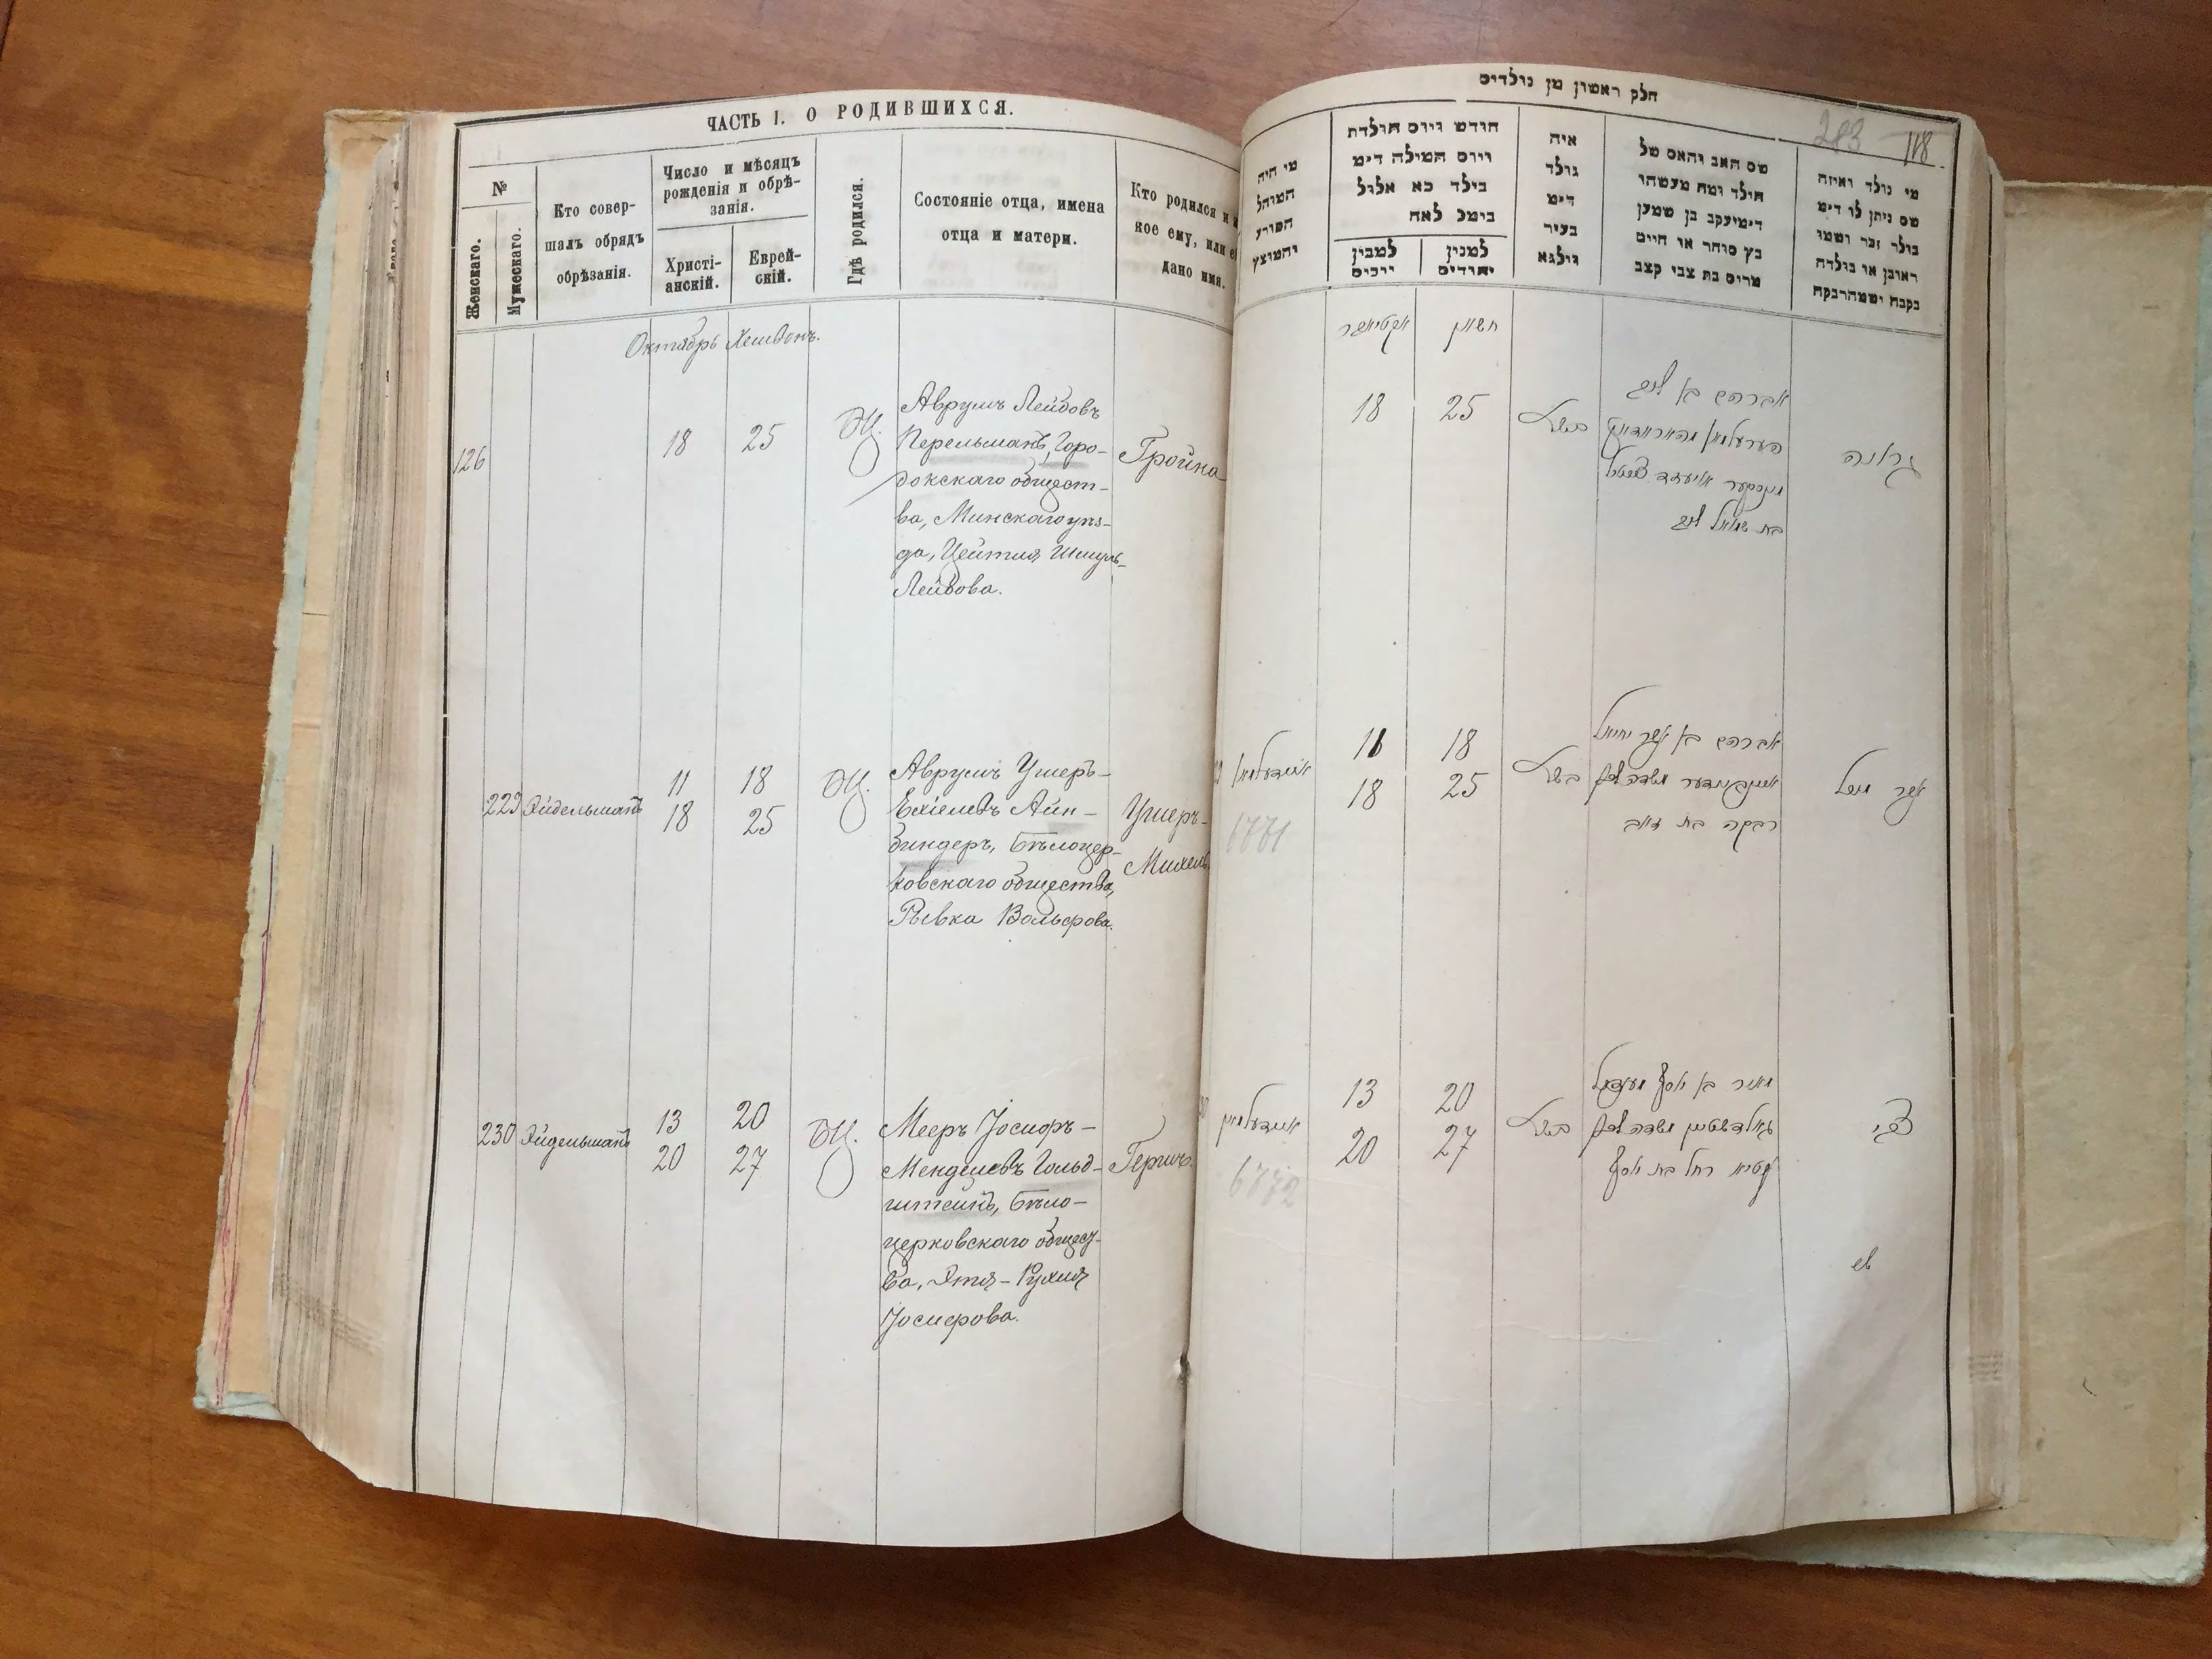 ЧАСТЬ I. О РОДИВШИХСЯ.
№
Женскаго.
Мужескаго.
Кто совер-
шалъ обрядъ
обрѣзанія.
Число и мѣсяцъ
рожденія и обрѣ-
занія.
Христі-
анскій.
Еврей-
скій.
Гдѣ родился.
Состояніе отца, имена
отца и матери.
Кто родился и
кое ему, или е
дано имя.
Октябрь Хешвонъ.
126
18
25
БЦ.
Аврумъ Лейбовъ
Перельманъ, Горо-
докскаго общест-
ва, Минскаго уѣз-
да, Цейтля Шмуль-
Лейбова.
Гройна
229
Эйдельманъ
11
18
18
25
БЦ.
Аврумъ Ушеръ-
Ехіелевъ Айн-
биндеръ, Бѣлоцер-
ковскаго общества,
Ривка Вольфова.
Ушеръ-
Михель
230
Эйдельманъ
13
20
20
27
БЦ.
Мееръ Іосифъ-
Менделевъ Гольд-
штейнъ, Бѣло-
церковскаго общес-
ва, Этя-Рухля
Іосифова.
Гершъ.
חלק ראשון מן נולדים
283
118
מי היה
המוהל
הפורע
והמוצץ
חודש ויום הולדת
ויום המילה דימ
בילד כא אלול
בימל לאח
למנין
יהודים
איה
נולד
דימ
בעיר
ווילנא
שם האב והאם של
הילד ומה מעשהו
דימיעקב בן שמעון
כץ סוחר או חיים
מרים בת צבי קצב
מי נולד ואיזה
שם ניתן לו דימ
בולד זכר ושמו
ראובן או בולדה
נקבה ושמה רבקה
אקטיאבר
חשון
18
25
אברהם בן ליב
בת שמואל ליב
גרונה
אידעלמאן
11
18
18
25
אברהם בן אשר יחיאל
רבקה בת זאב
אשר מיכל
6771
אידעלמאן
13
20
20
27
מאיר בן יוסף מענדיל
גאלדשטיין
רחל בת יוסף
צבי
6772